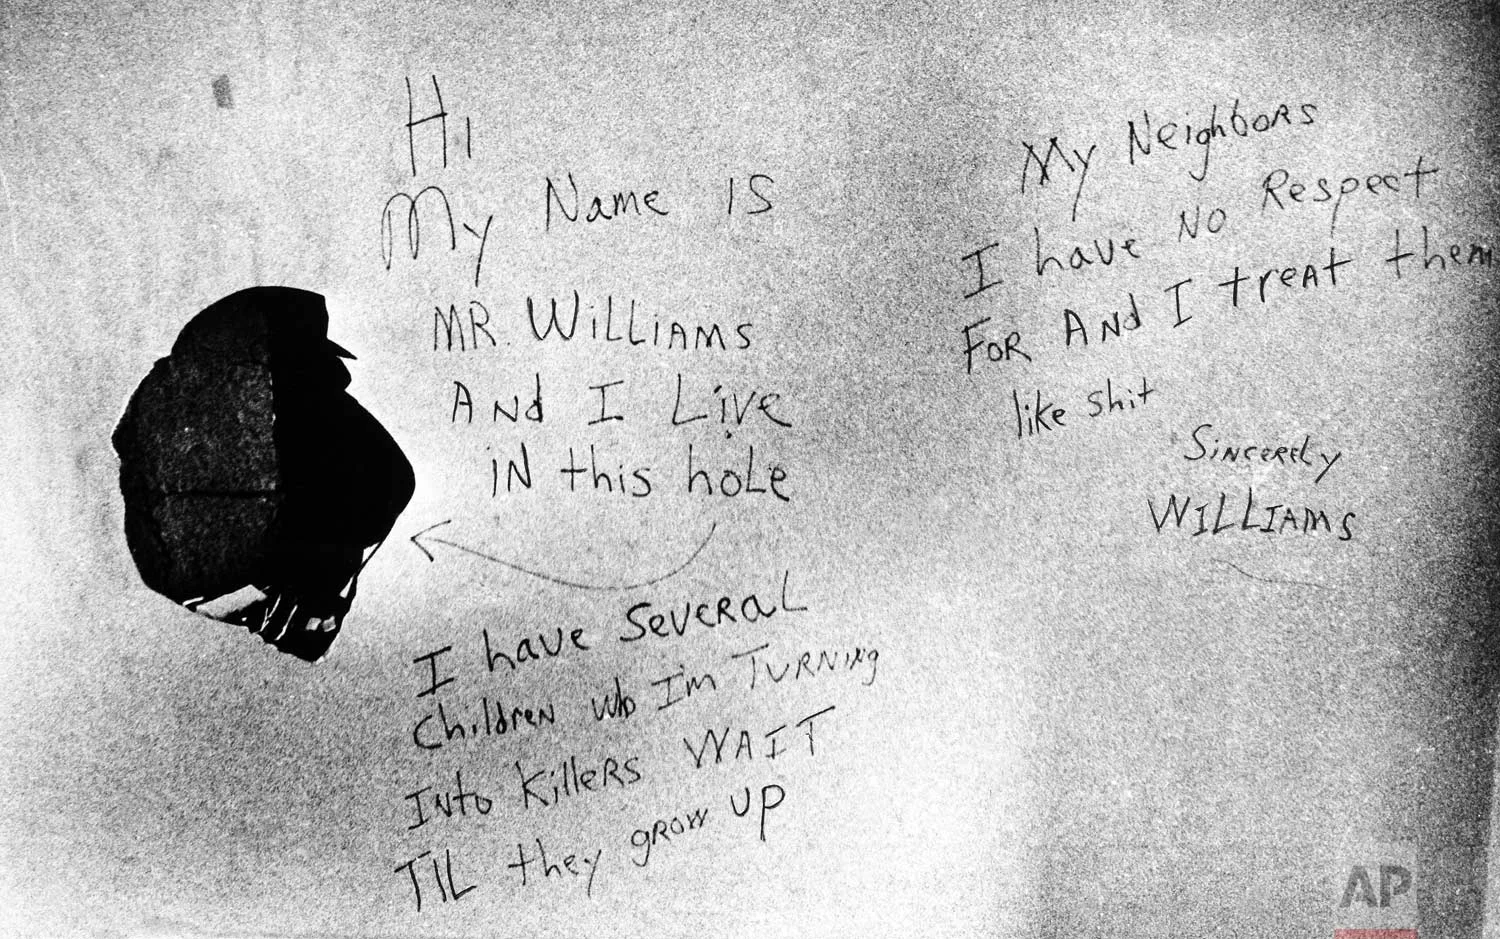 Hi
My Name IS
MR. WiLLiAMS
ANd I Live
iN this hoLe
I have SeveRaL
ChildreN who I'm TURNiNg
INto KilleRS WAIT
TIL they gROW UP
My NeighboRS
I have NO Respect
FoR ANd I treAt them
like shit
SiNceReLy
WILLIAMS
AP